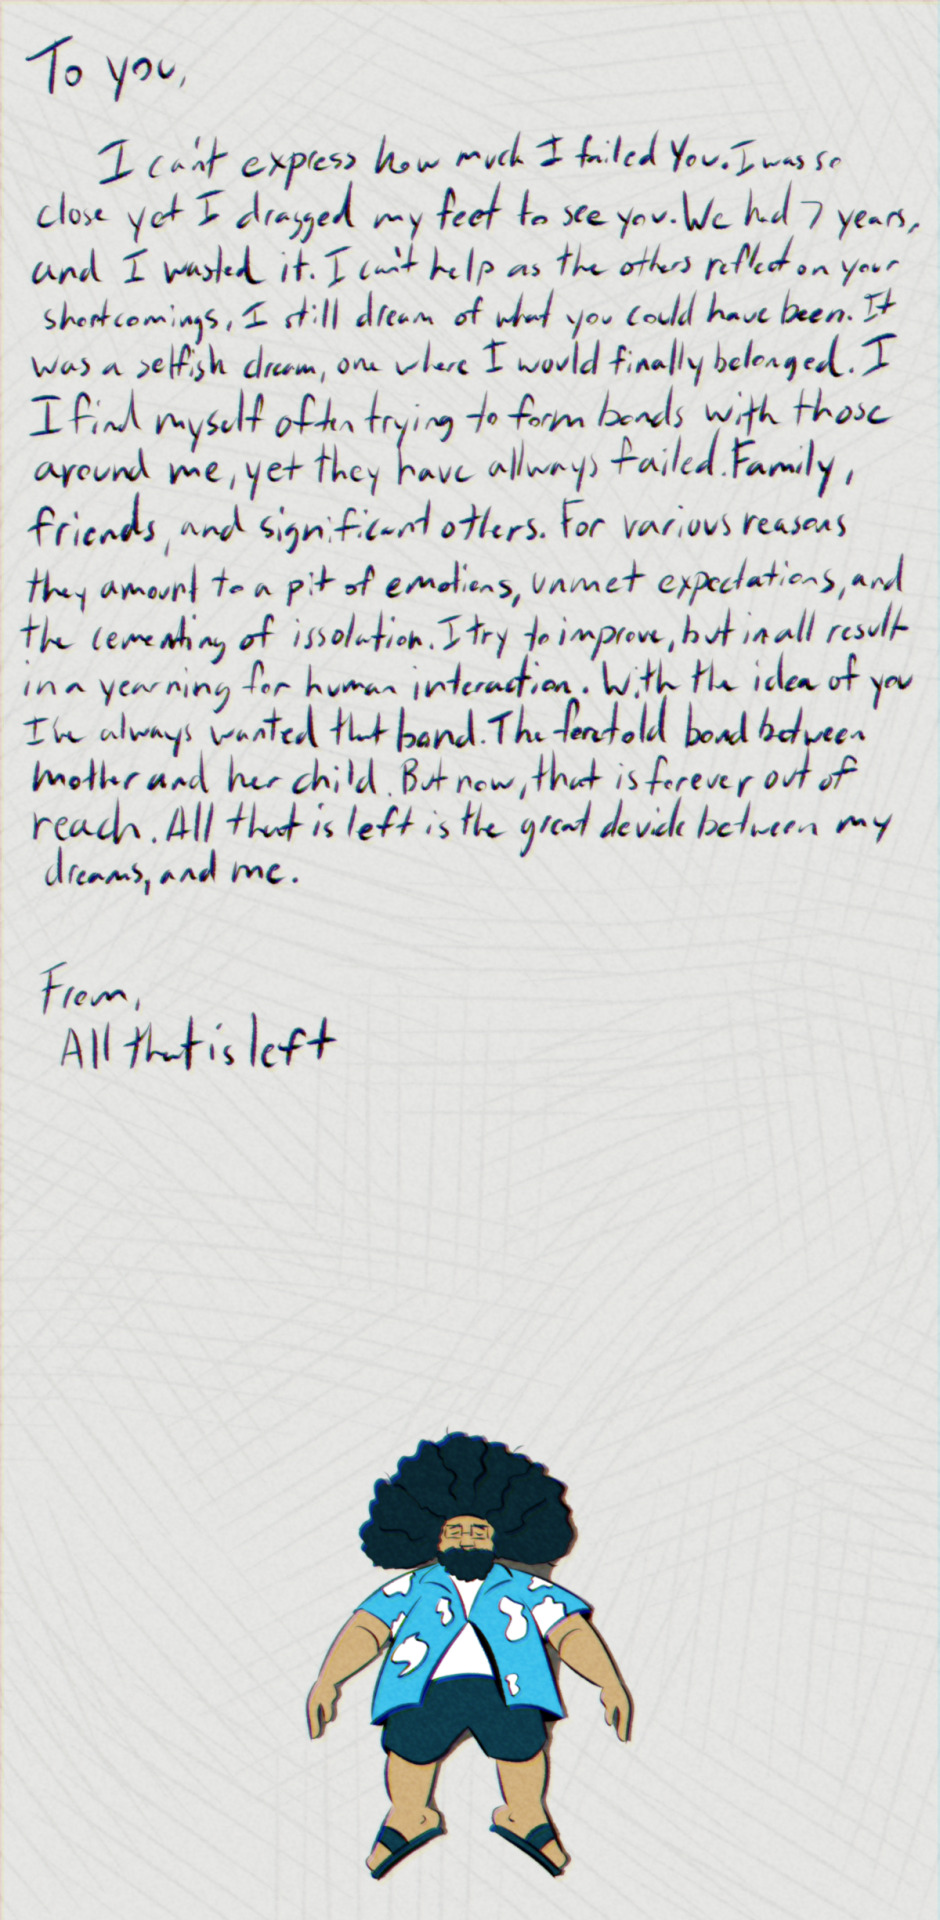 To you,
I can't express how much I failed You. I was so
close yet I dragged my feet to see you. We had 7 years,
and I wasted it. I can't help as the others reflect on your
shortcomings, I still dream of what you could have been. It
was a selfish dream, one where I would finally belonged. I
I find myself often trying to form bonds with those
around me, yet they have allways failed. Family,
friends, and significant others. For various reasons
they amount to a pit of emotions, unmet expectations, and
the cementing of issolation. I try to improve, but in all result
in a yearning for human interaction. With the idea of you
I've always wanted that bond. The foretold bond between
mother and her child. But now, that is forever out of
reach. All that is left is the great devide between my
dreams, and me.
From,
All that is left